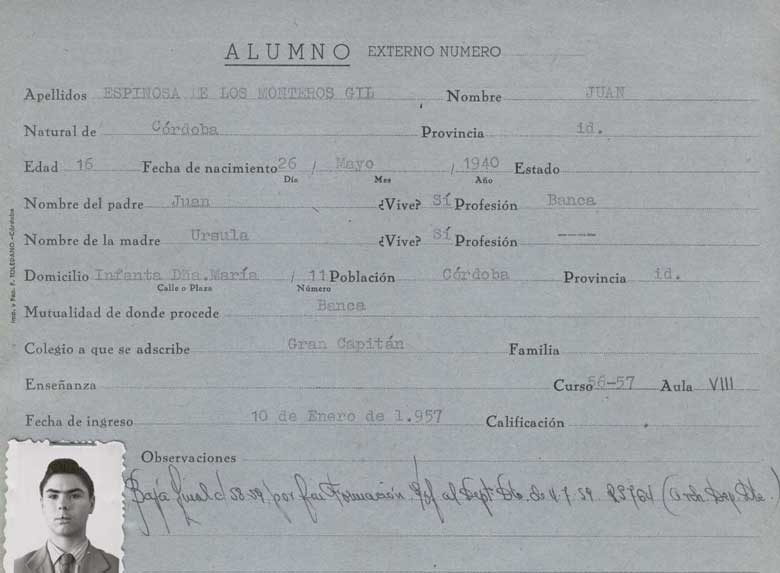 ALUMNO EXTERNO NUMERO
Apellidos ESPINOSA DE LOS MONTEROS GIL Nombre JUAN
Natural de Córdoba Provincia id.
Edad 16 Fecha de nacimiento 26 / Mayo / 1940 Estado
Día Mes Año
Nombre del padre Juan ¿Vive? Sí Profesión Banca
Nombre de la madre Ursula ¿Vive? Sí Profesión ----
Domicilio Infanta Dña.María / 11 Población Córdoba Provincia id.
Calle o Plaza Número
Mutualidad de donde procede Banca
Colegio a que se adscribe Gran Capitán Familia
Enseñanza Curso 56-57 Aula VIII
Fecha de ingreso 10 de Enero de 1.957 Calificación
Observaciones
Baja final c/ 58-59/ por fin Formación al Dept. de 4-7-59 (Arch. Dep. Dte.)
Imp. y Pap. F. TOLEDANO.-Córdoba